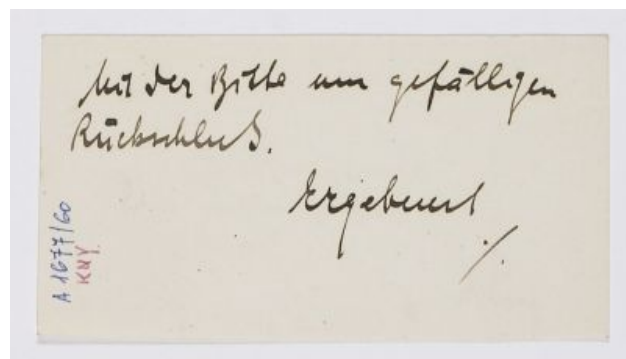 Mit der Bitte um gefälligen
Rückschluß.
Ergebenst
./.
A 1677/60
KNY